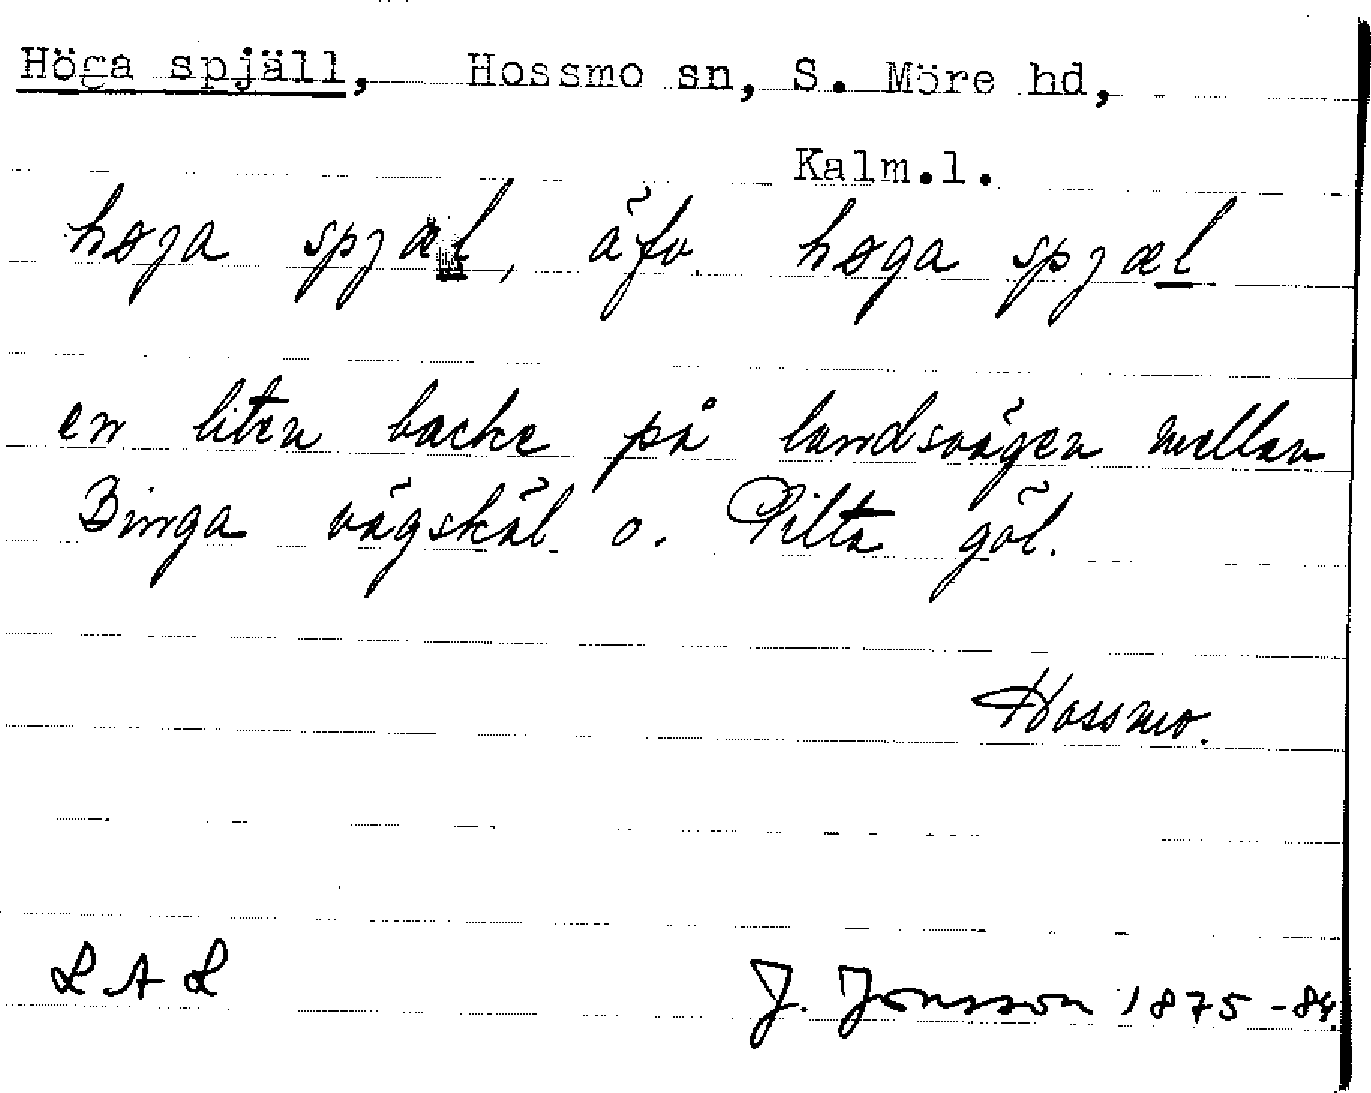 Höga spjäll, Hossmo sn, S. Möre hd,
Kalm.l.
høja spjæl, äfv. høga spjæl
en liten backe på landsvägen mellan
Binga vägskäl o. Pilta göl.
Hossmo.
L A L J. Jonsson 1875-84.